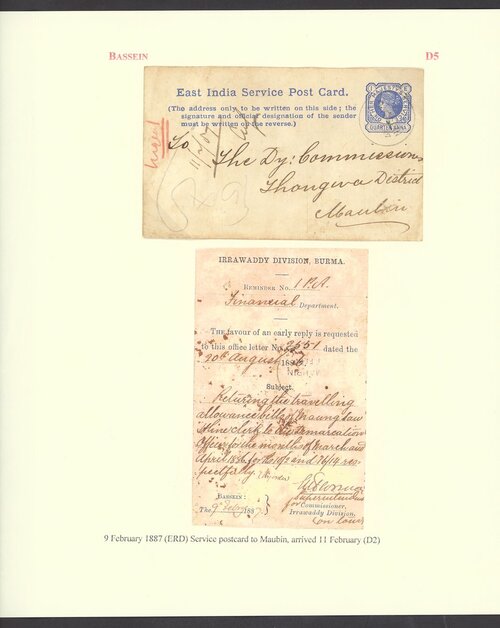 BASSEIN
D5
East India Service Post Card.
(The address only to be written on this side; the
signature and official designation of the sender
must be written on the reverse.)
QUARTER ANNA
Urgent
To
The Dy: Commissioner
Thongwa District
Maubin
IRRAWADDY DIVISION, BURMA.
REMINDER No. 1
Financial Department.
THE favour of an early reply is requested
to this office letter No. 2651 dated the
20th August 188
Subject.
Returning the travelling
allowance bills of Maung Saw
Mine clerk to the Demarcation
Officer for the months of March and
April 1886 for Rs and 76/14 res-
pectfully.
Superintendent
for Commissioner,
Irrawaddy Division.
(on tour)
BASSEIN:
The 9th Feby 1887
9 February 1887 (ERD) Service postcard to Maubin, arrived 11 February (D2)